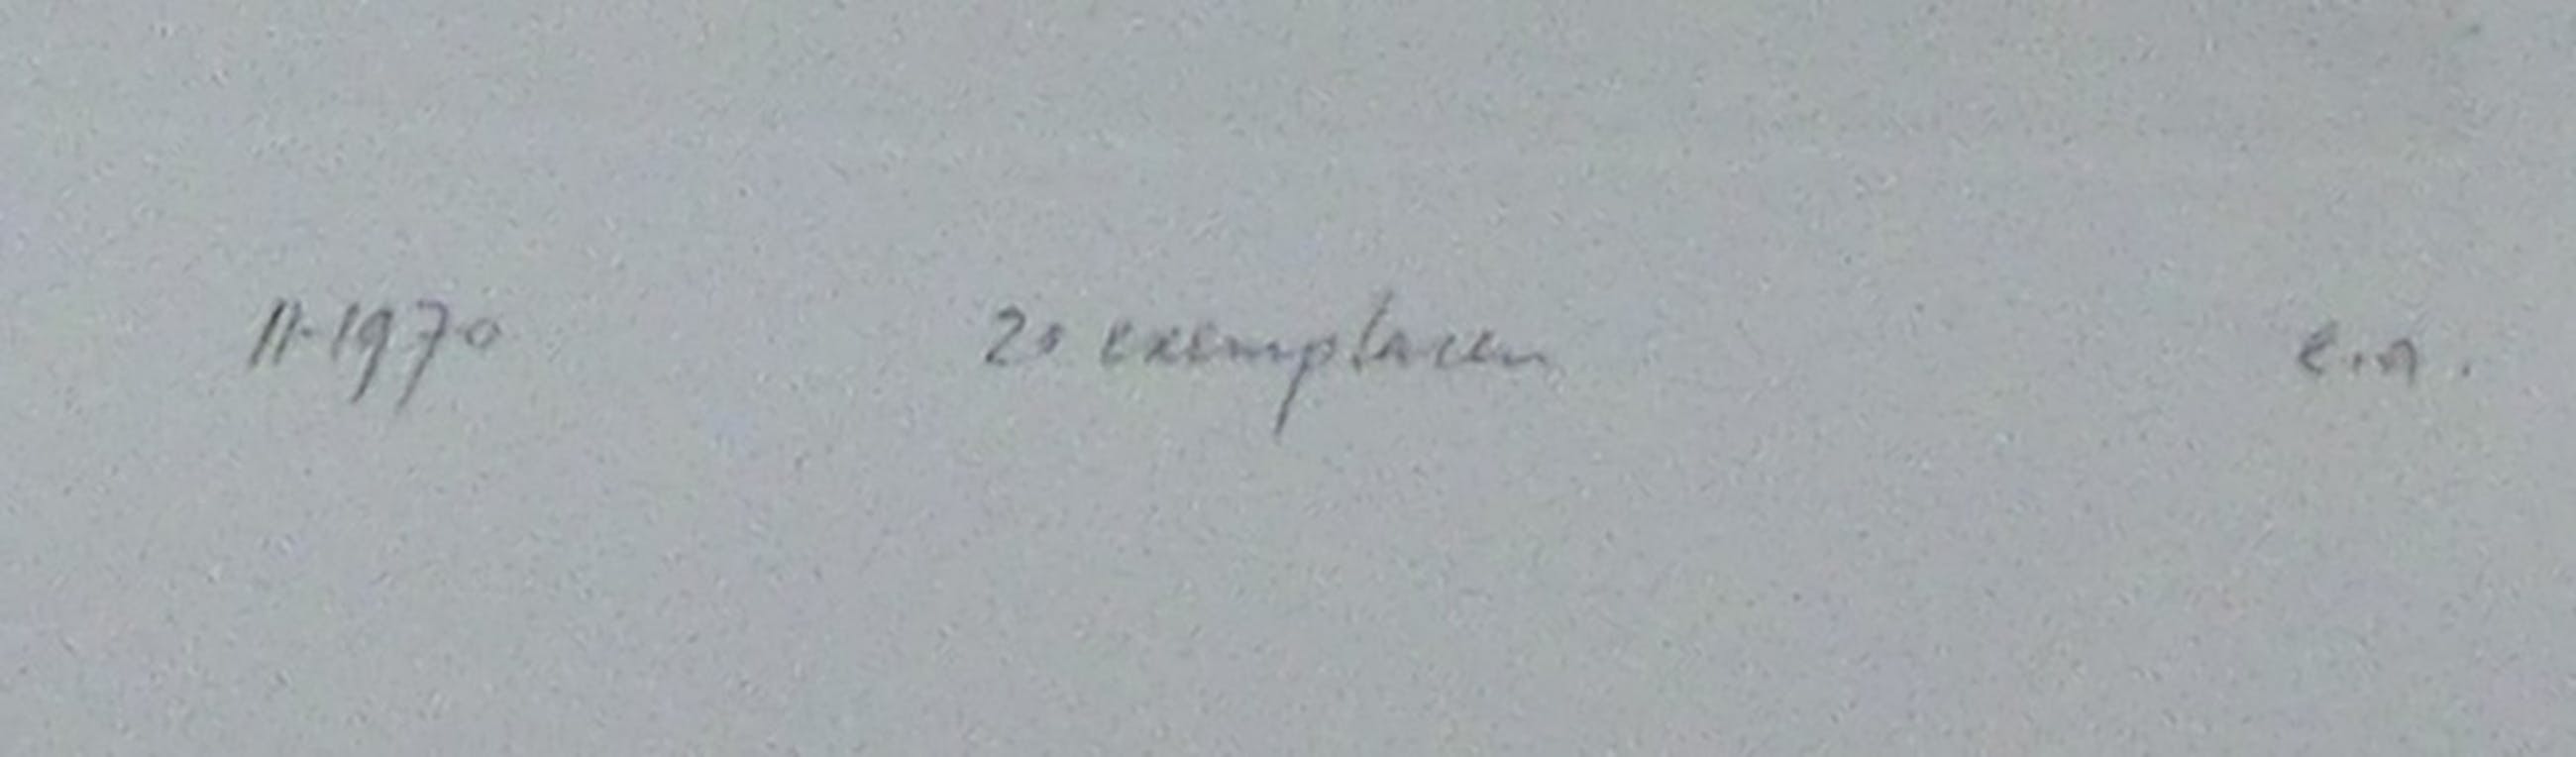 11-1970 20 exemplaren e.a.